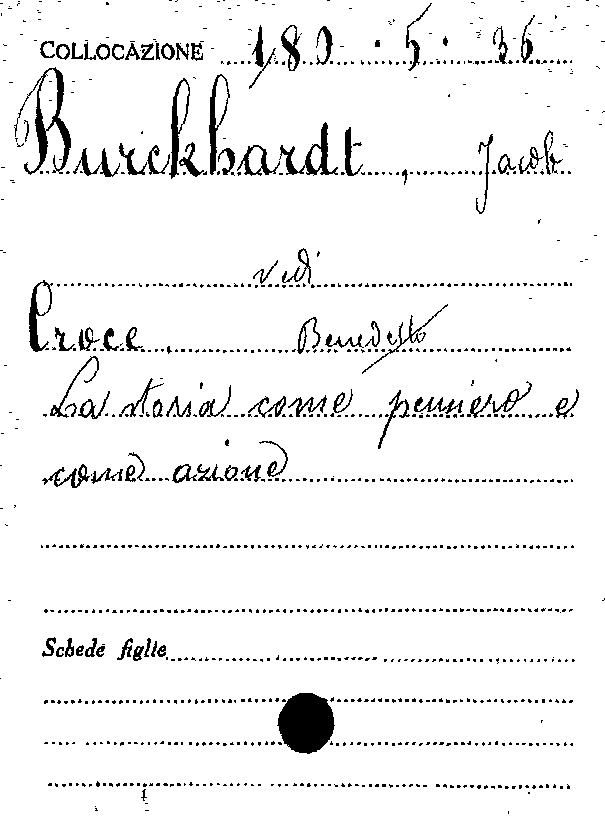 COLLOCAZIONE 180 . 5 . 36
Burckhardt, Jacob
vedi
Croce, Benedetto
La storia come pensiero e
come azione
Schede figlie